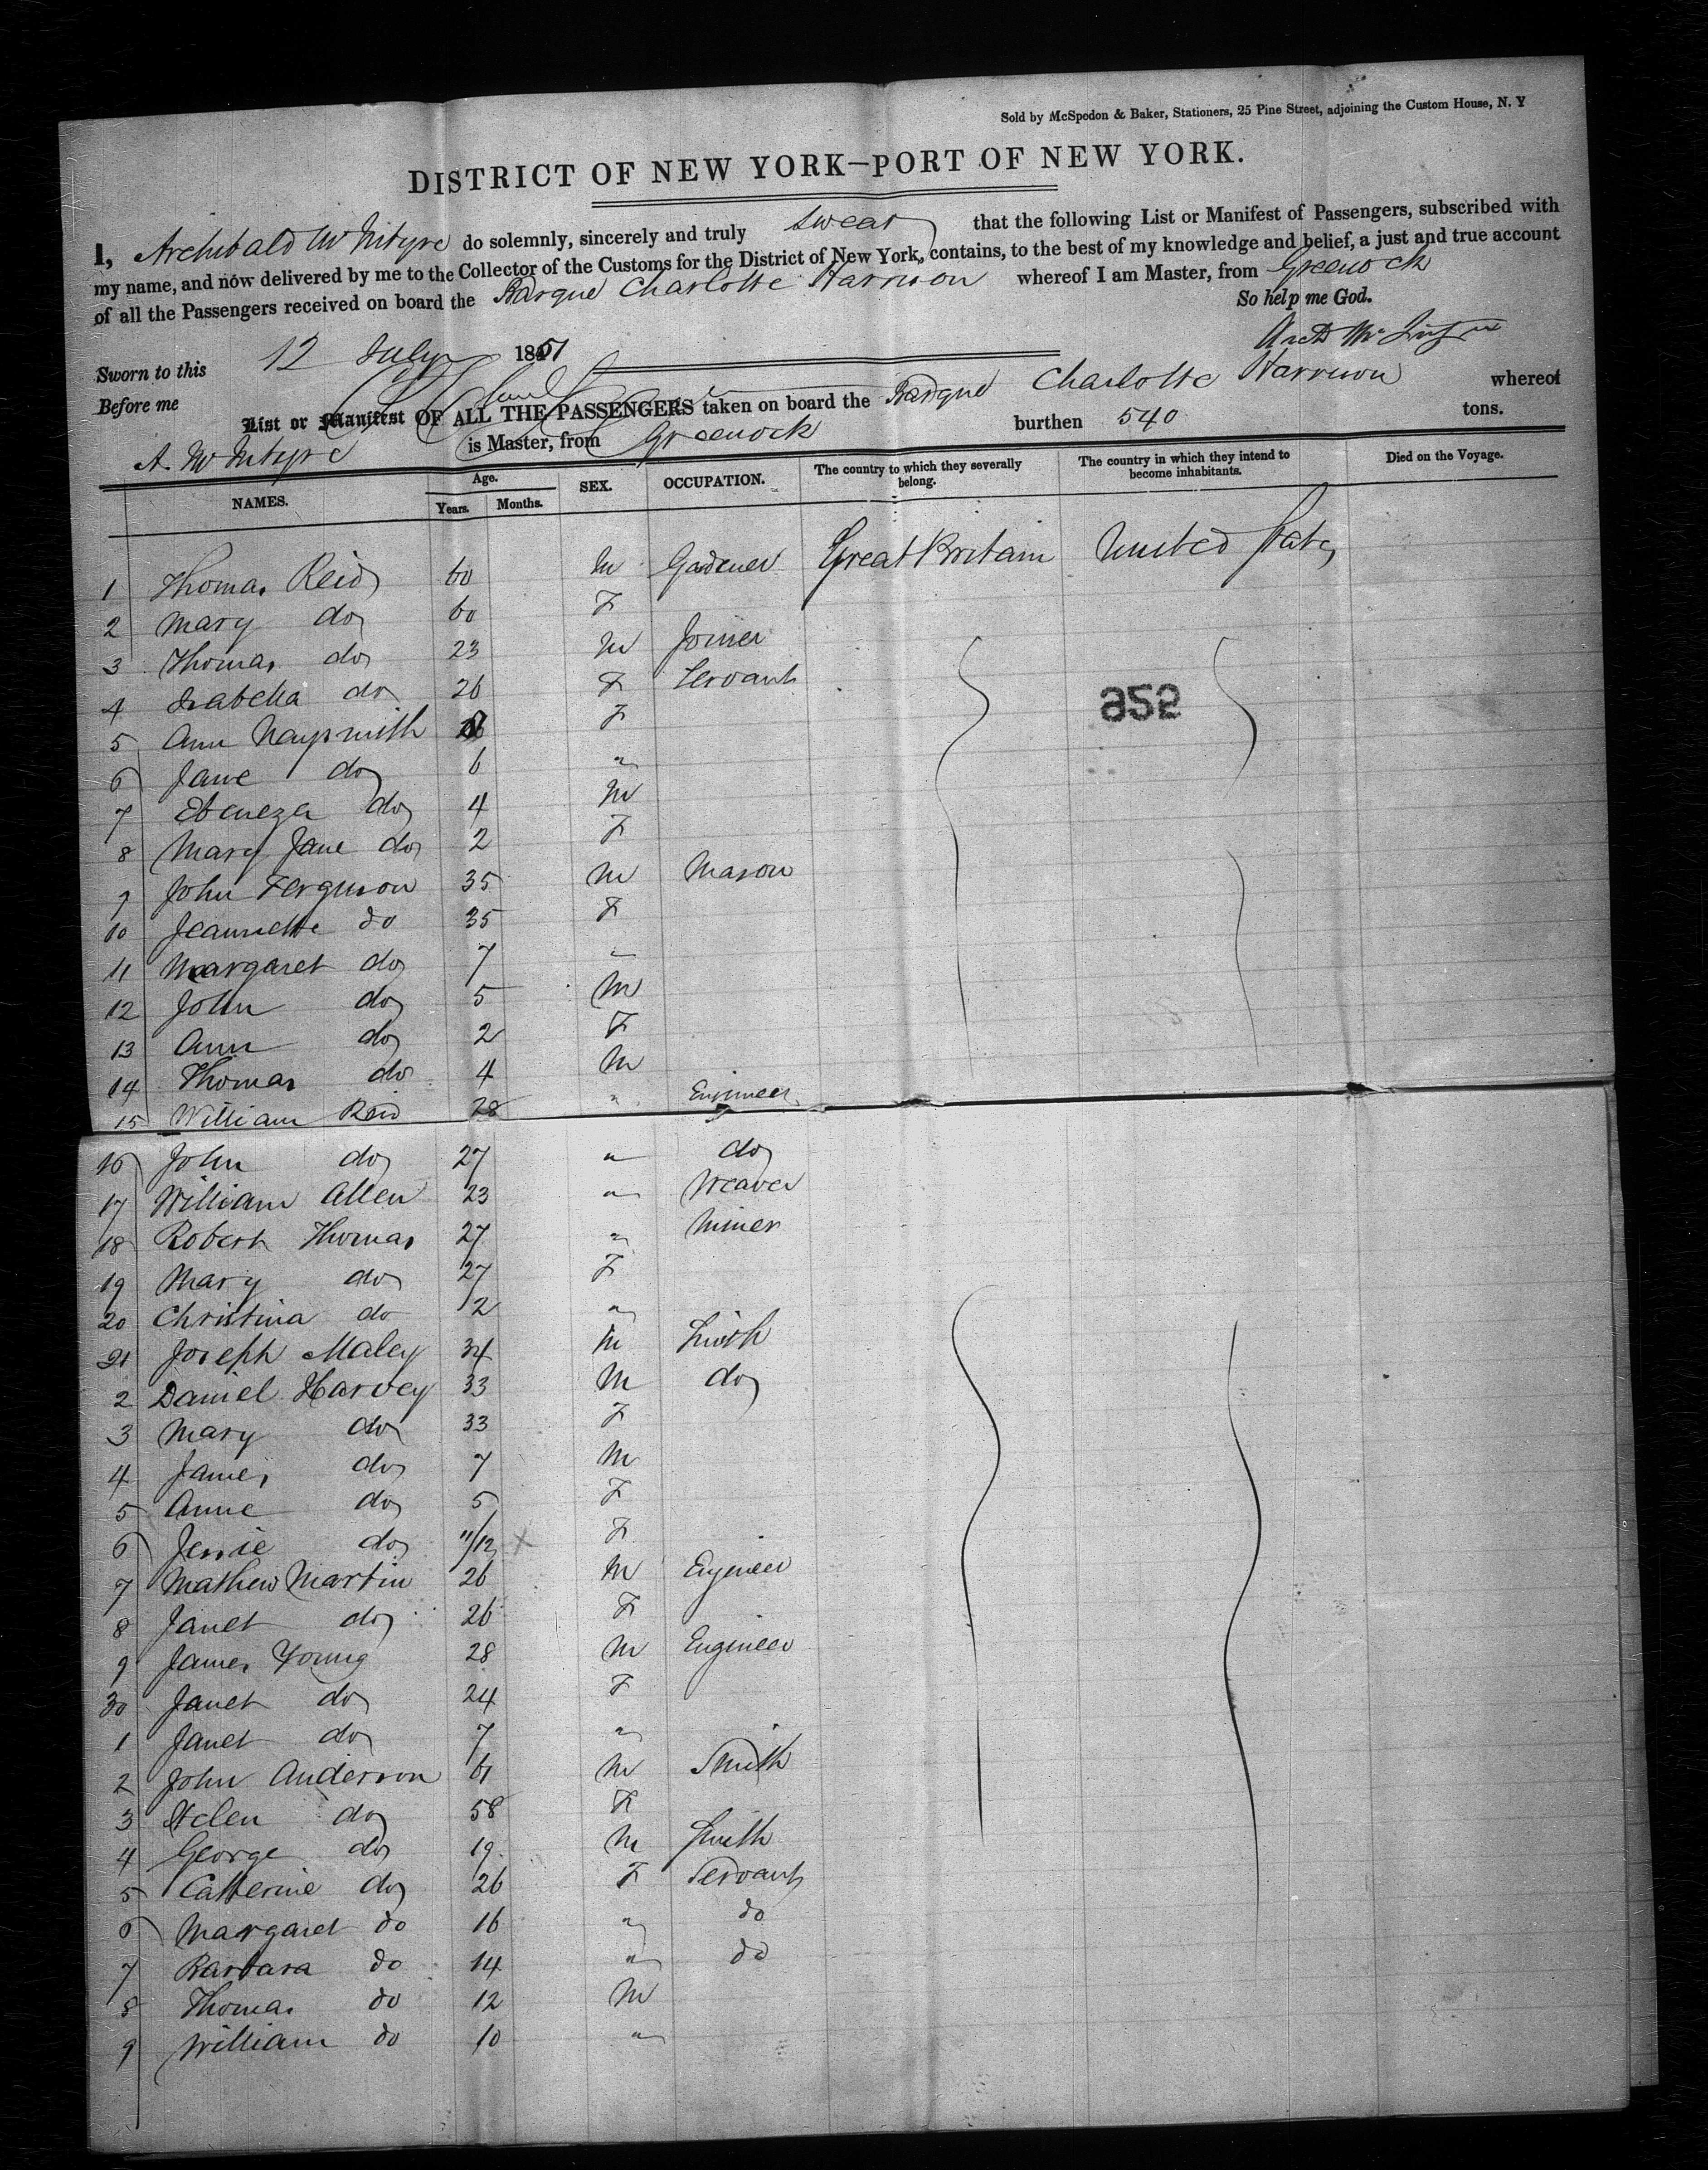 Sold by McSpedon & Baker, Stationers, 25 Pine Street, adjoining the Custom House, N. Y
DISTRICT OF NEW YORK—PORT OF NEW YORK.
I, Archibald McIntyre do solemnly, sincerely and truly swear that the following List or Manifest of Passengers, subscribed with
my name, and now delivered by me to the Collector of the Customs for the District of New York, contains, to the best of my knowledge and belief, a just and true account
of all the Passengers received on board the Barque Charlotte Harrison whereof I am Master, from Greenock
So help me God.
Archd McIntyre
Sworn to this 12 July 1851
Before me
List or Manifest OF ALL THE PASSENGERS taken on board the Barque Charlotte Harrison whereof
A. McIntyre is Master, from Greenock burthen 540 tons.
NAMES. Age. Years. Months. SEX. OCCUPATION. The country to which they severally belong. The country in which they intend to become inhabitants. Died on the Voyage.
1 Thomas Reid 60 M Gadener Great Britain United States
2 Mary do 60 F
3 Thomas do 23 M Joiner
4 Isabella do 26 F Servant
852
5 Ann Naysmith F
6 Jane do 6 "
7 Ebenezer do 4 M
8 Mary Jane do 2 F
9 John Ferguson 35 M Mason
10 Jeannette do 35 F
11 Margaret do 7 "
12 John do 5 M
13 Ann do 2 F
14 Thomas do 4 M
15 William Reid 28 " Engineer
16 John do 27 " do
17 William Allen 23 " Weaver
18 Robert Thomas 27 " Miner
19 Mary do 27 F
20 Christina do 2 "
21 Joseph Maley 34 M Smith
2 Daniel Harvey 33 M do
3 Mary do 33 F
4 James do 7 M
5 Anne do 5 F
6 Jessie do 11/12 X F
7 Mathew Martin 26 M Engineer
8 Janet do 26 F
9 James Young 28 M Engineer
30 Janet do 24 F
1 Janet do 7 "
2 John Anderson 61 M Smith
3 Helen do 58 F
4 George do 19 M Smith
5 Catherine do 26 F Servant
6 Margaret do 16 " do
7 Barbara do 14 " do
8 Thomas do 12 M
9 William do 10 "